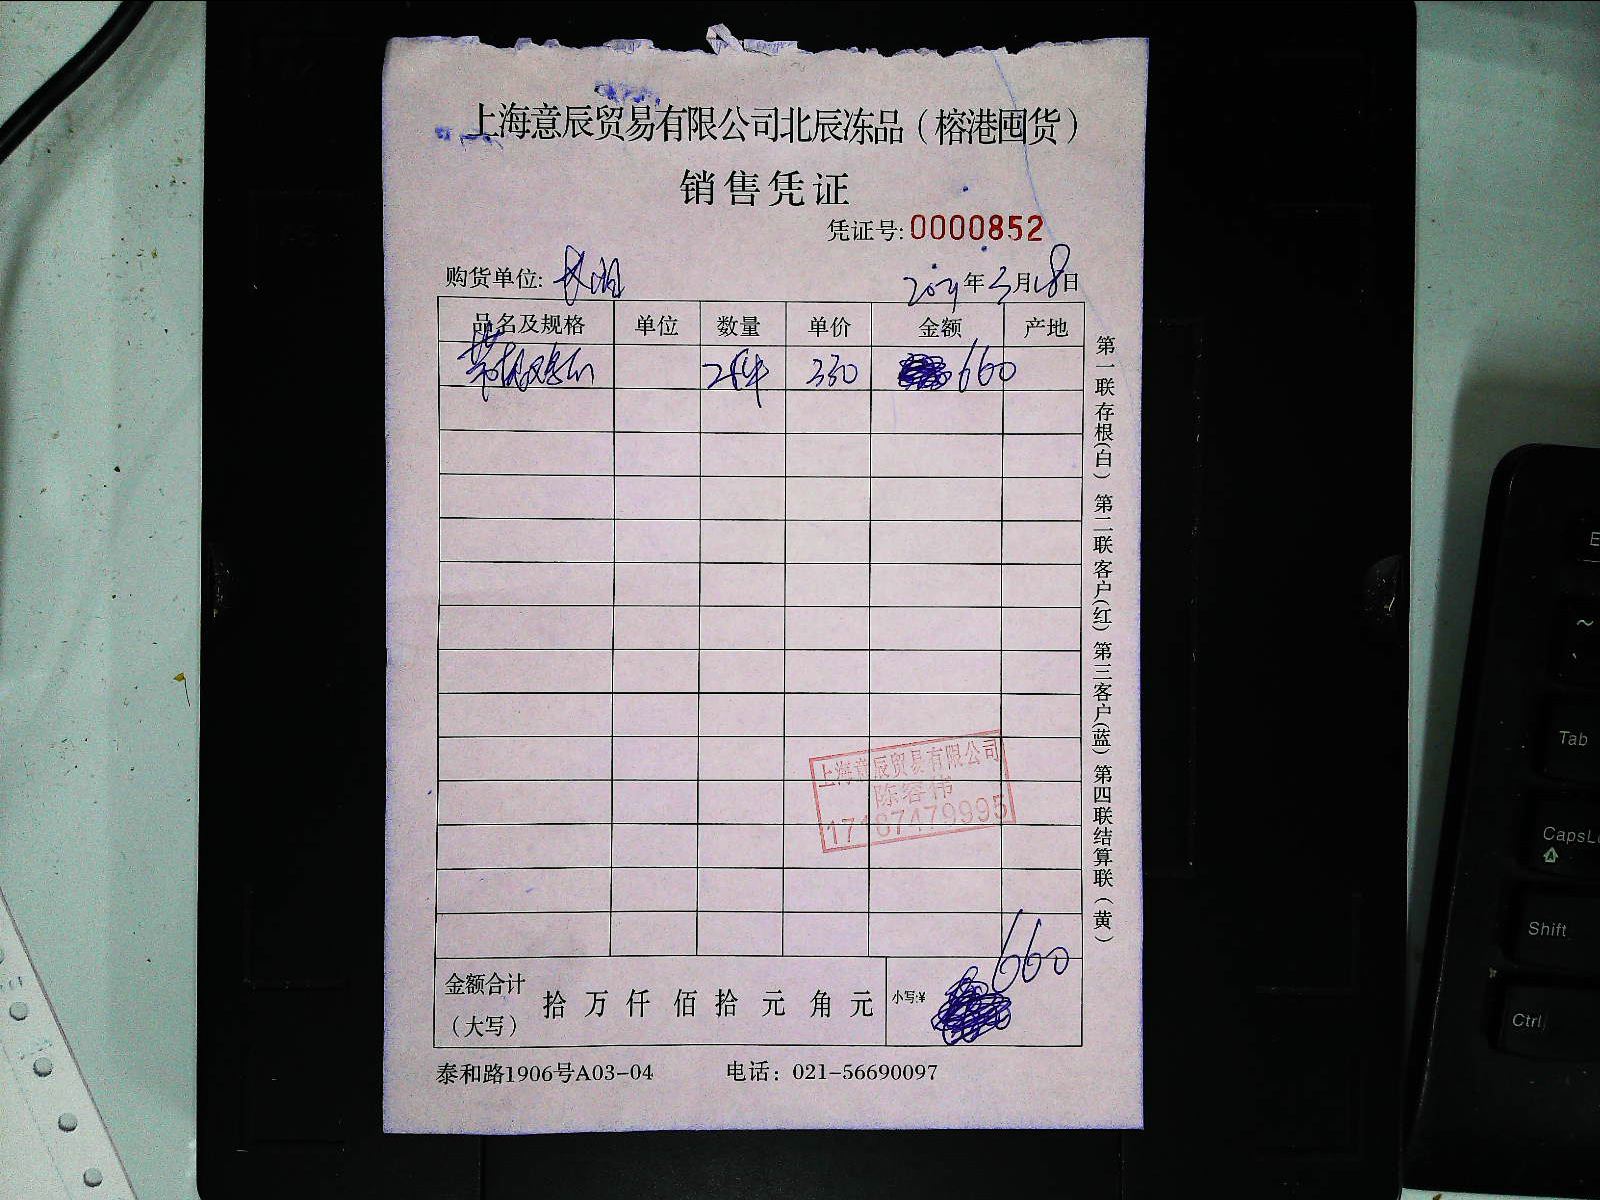 上海意辰贸易有限公司北辰冻品（榕港囤货）
销售凭证
凭证号: 0000852
购货单位:
年3月18日
品名及规格 单位 数量 单价 金额 产地
2件 330 660
第一联存根(白) 第二联客户(红) 第三客户(蓝) 第四联结算联(黄)
上海意辰贸易有限公司
陈容伟
17187479995
金额合计（大写） 拾 万 仟 佰 拾 元 角 元 小写:¥ 660
泰和路1906号A03-04 电话：021-56690097
E
~
Tab
CapsL
Shift
Ctrl